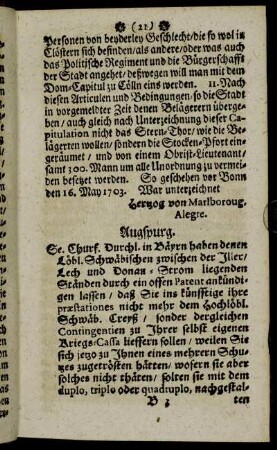 (21)
Personen von beyderley Geschlecht/die so wol in
Clöstern sich befinden/als andere/oder was auch
das Politische Regiment und die Bürgerschafft
der Stadt angehet/deßwegen will man mit dem
Dom-Capitul zu Cölln eins werden. 11. Nach
diesen Articulen und Bedingungen/so die Stadt
in vorgemeldter Zeit denen Belägerern überge-
ben/auch gleich nach Unterzeichnung dieser Ca-
pitulation nicht das Stern-Thor/wie die Be-
lägerten wollen/sondern die Stocken-Pfort ein-
geräumet/und von einem Obrist-Lieutenant/
samt 300. Mann um alle Unordnung zu vermei-
den besetzt werden. So geschehen vor Bonn
den 16. May 1703. War unterzeichnet
Hertzog von Marlboroug.
Alegre.
Augspurg.
Se. Churf. Durchl. in Bäyrn haben denen
Löbl. Schwäbischen zwischen der Iller/
Lech und Donau-Strom liegenden
Ständen durch ein offen Patent ankündi-
gen lassen/daß Sie ins künfftige ihre
præstationes nicht mehr dem Hochlöbl.
Schwäb. Creyß/sonder dergleichen
Contingentien zu Ihrer selbst eigenen
Kriegs-Cassa lieffern sollen/weilen Sie
sich jetzo zu Ihnen eines mehrern Schu-
tzes zugetrösten hätten/wofern sie aber
solches nicht thäten/solten sie mit dem
duplo, triplo oder quadruplo, nachgestal-
B 3 ten